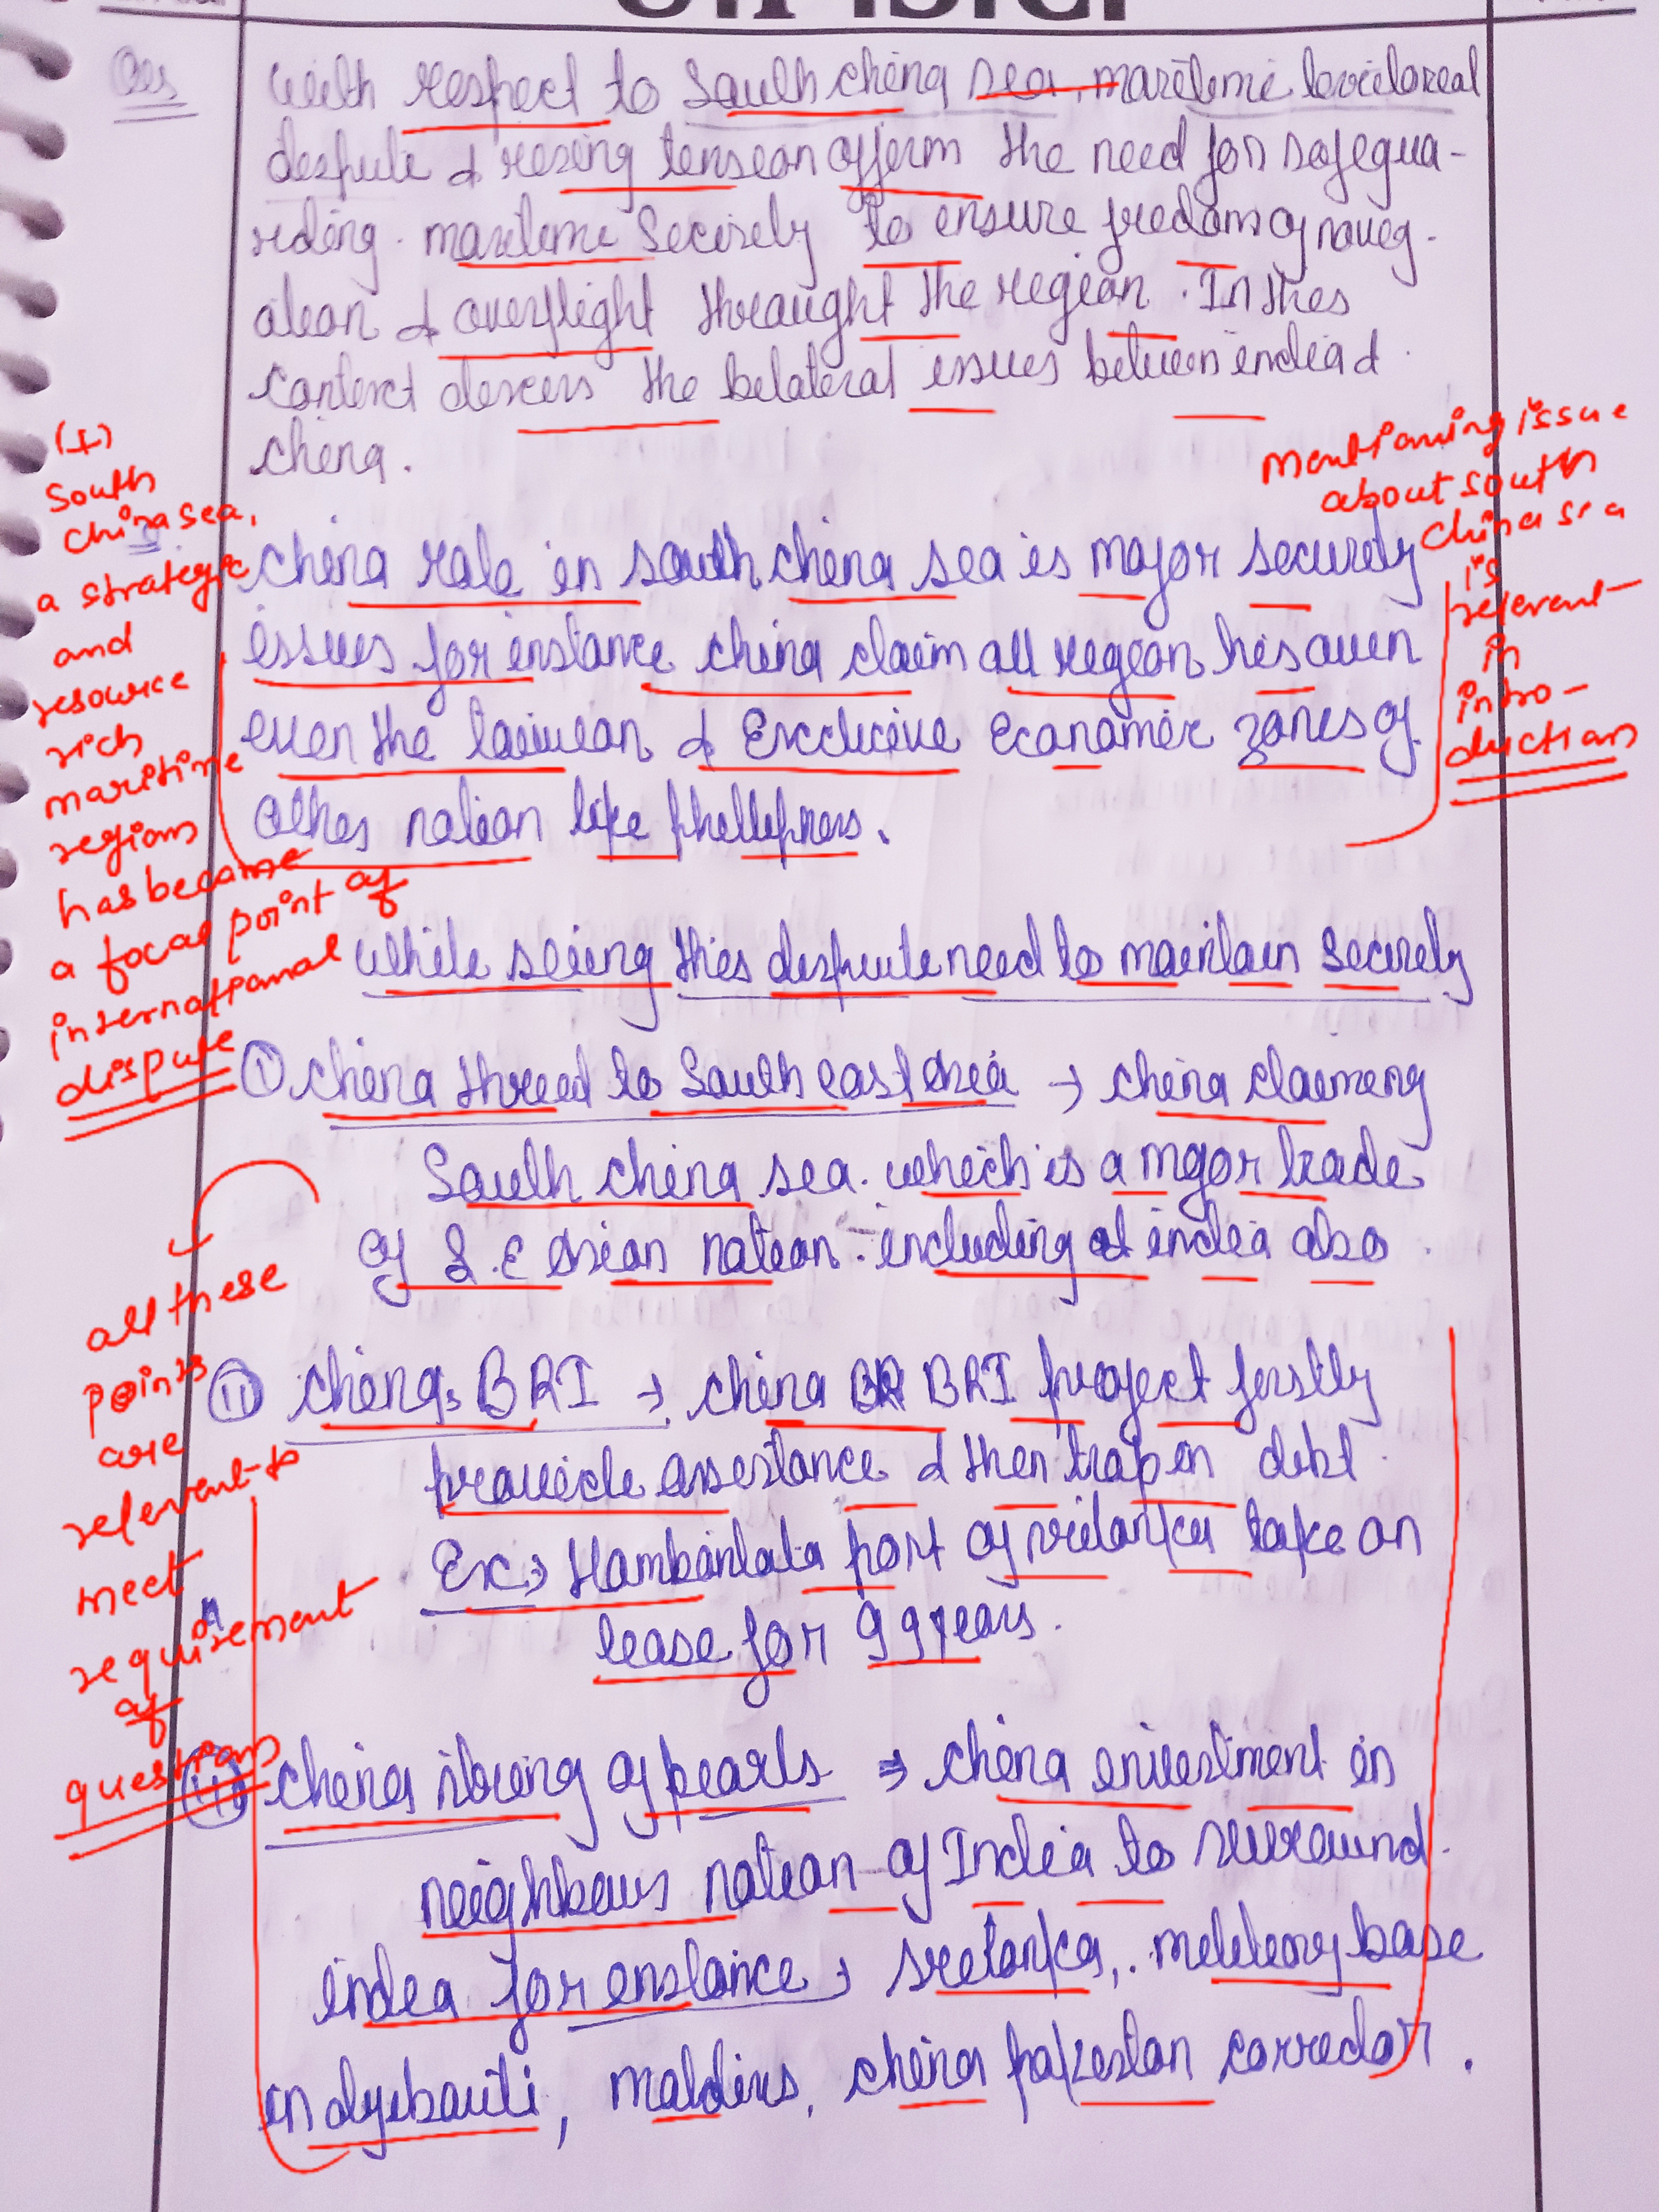 Qus
With respect to South china sea, maritime teritoreal
despute & resing tension afferm the need for safegua-
rding maritime Security to ensure fredom of navig-
ation & overflight throught the region. In this
context discuss the belateral issues between india &
china.
mentioning issue
about south
china sea
is
relevent
in
intro-
duction
(I)
South
china sea,
a strategic
and
resource
rich
maritime
regions
has become
a focal point of
international
dispute
china role in south china sea is major security
issues for instance china claim all region his owen
even the taiwan & Excclusive Economic zones of
other nation like phellipines.
while seeing this despute need to maintain Security
① china threed to South east Asia → china claiming
South china sea. which is a major trade
of S.E Asian nation. including of india also
all these
points
are
relevent to
meet
requirement
of
questions
(ii) china's BRI → china BRI project firstly
provide assestance & then trap in debt.
Ex→ Hambantata port of srilanka take on
lease for 99 years.
(iii) china string of pearls ⇒ china envestiment in
neighbours nation of India to surround
india for enstance → Srelanka, meletory base
in dyebauti, maldives, china pakestan corredor.